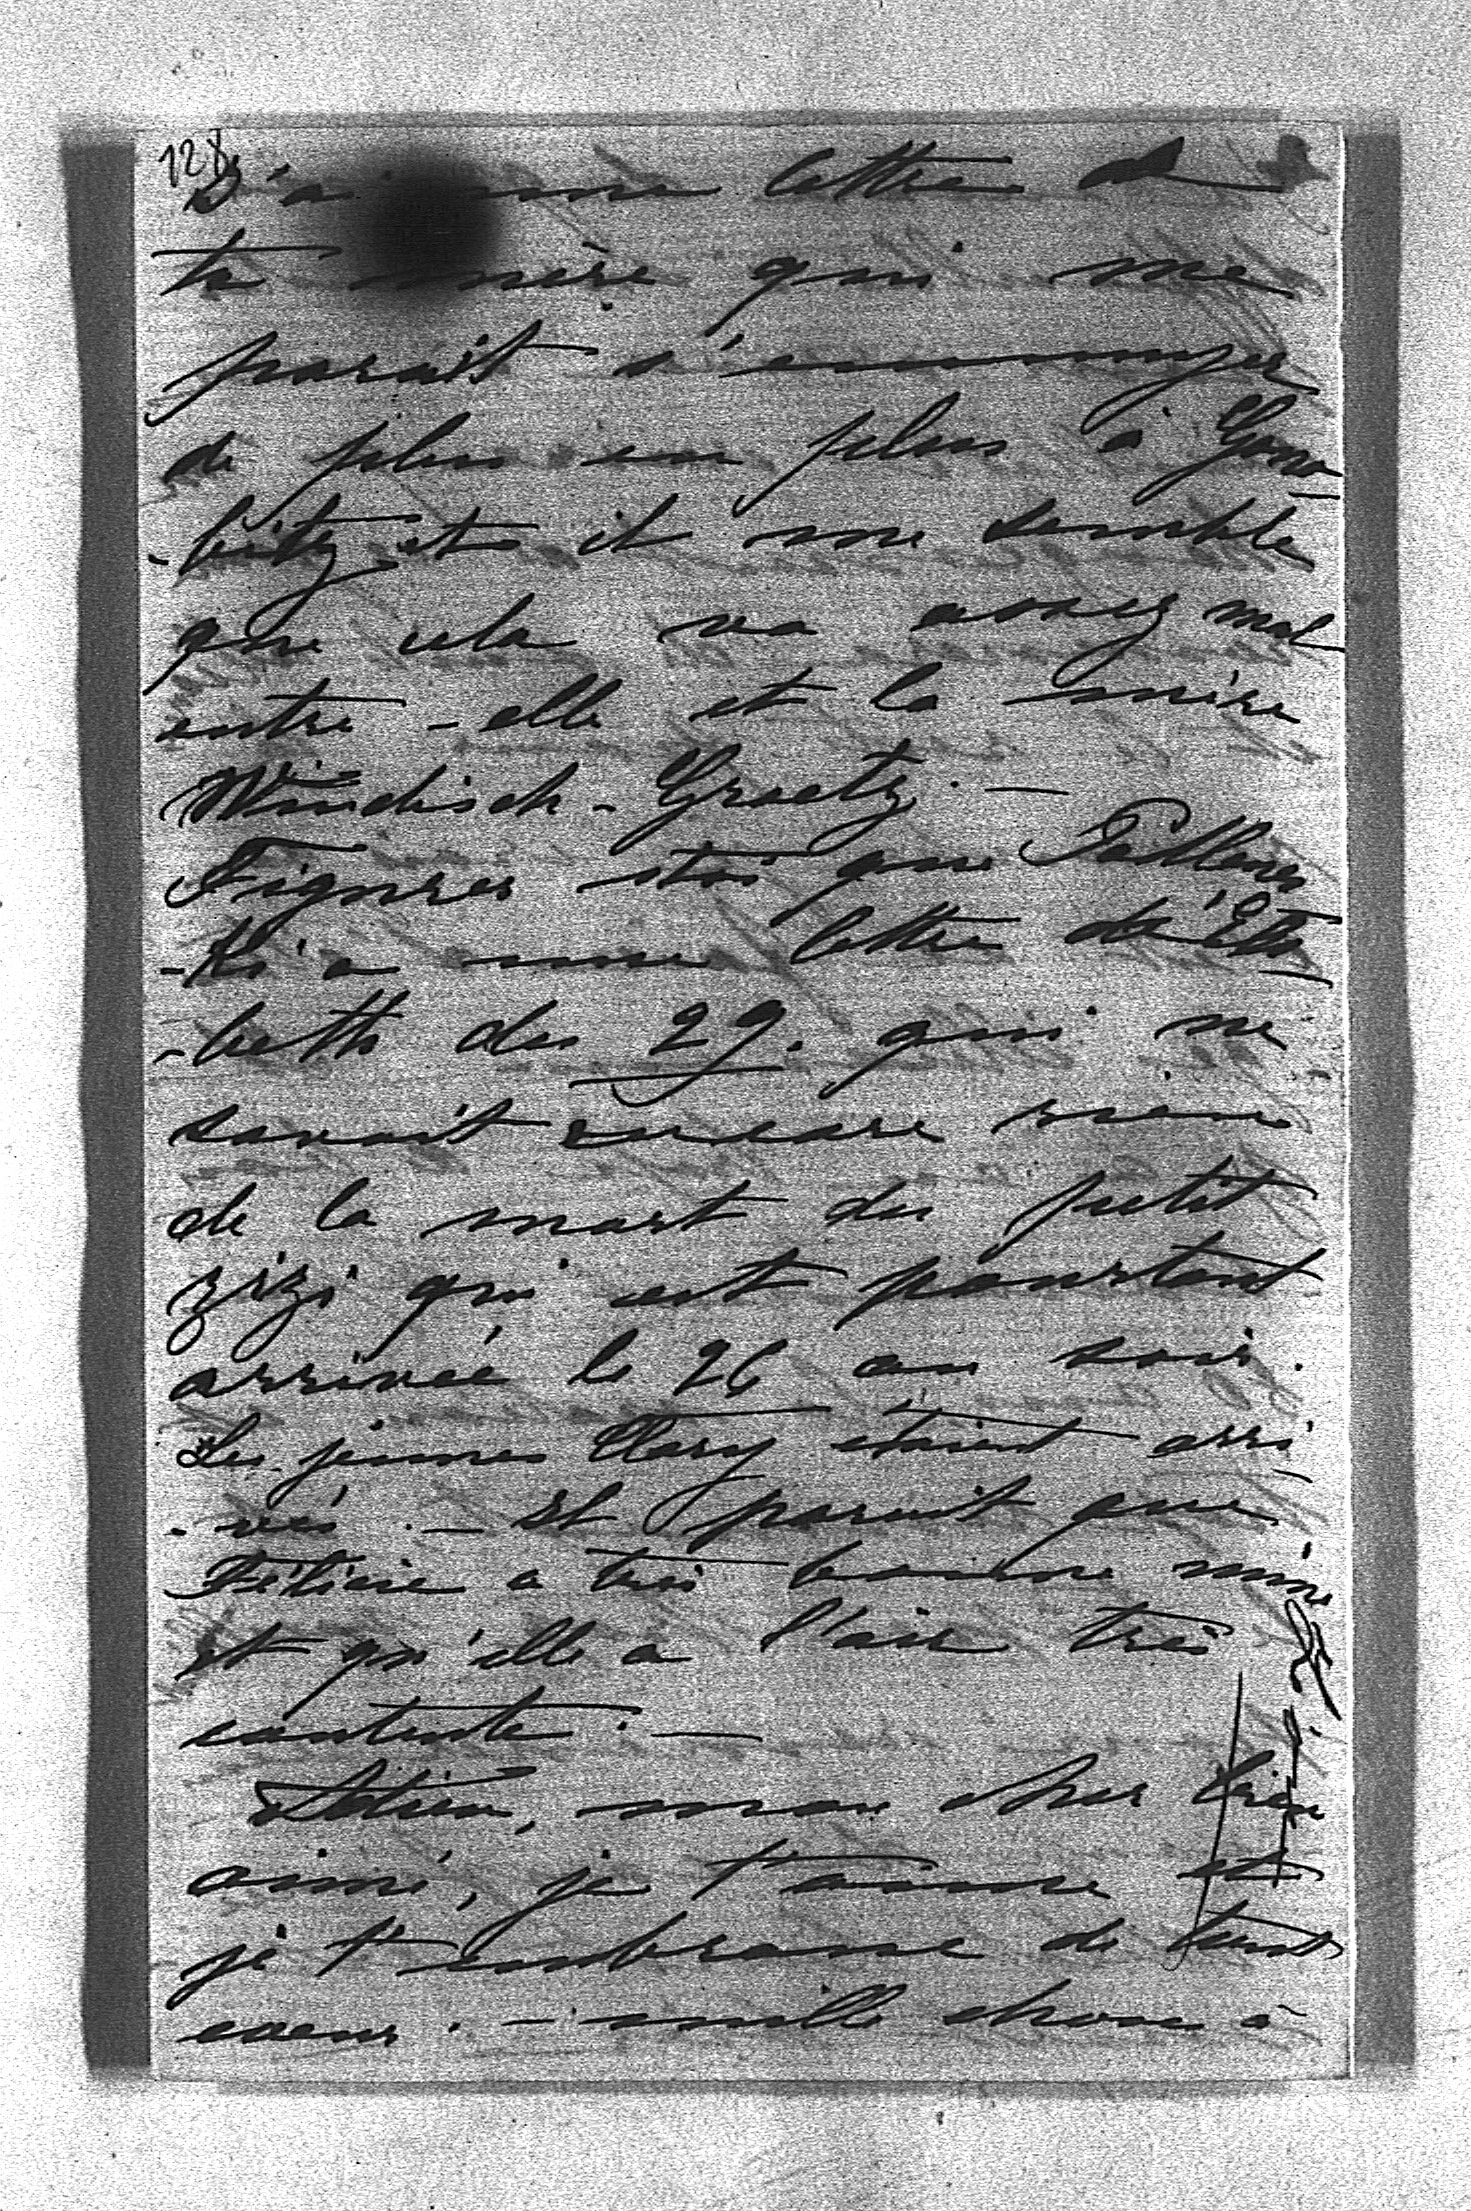 128
J'ai une lettre de
ta mère qui me
parait s'ennuyer
de plus en plus à Gono
-bitz et il me semble
que cela va assez mal
entre - elle et la mère
Windisch - Graetz. —
Figures - toi que
-ki a une lettre d'Elisa
-beth du 29. qui ne
savait encore rien
de la mort du petit
zizi qui est pourtant
arrivée le 26 au soir.
Les jeunes Clary étaient arri
-vés. — Il parait que
Félicie a très bonne mine
et qu'elle a l'air très
contente. —
Adieu, mon cher bien
aimé, je t'aime et
je t'embrasse de tout
coeur. — mille choses à